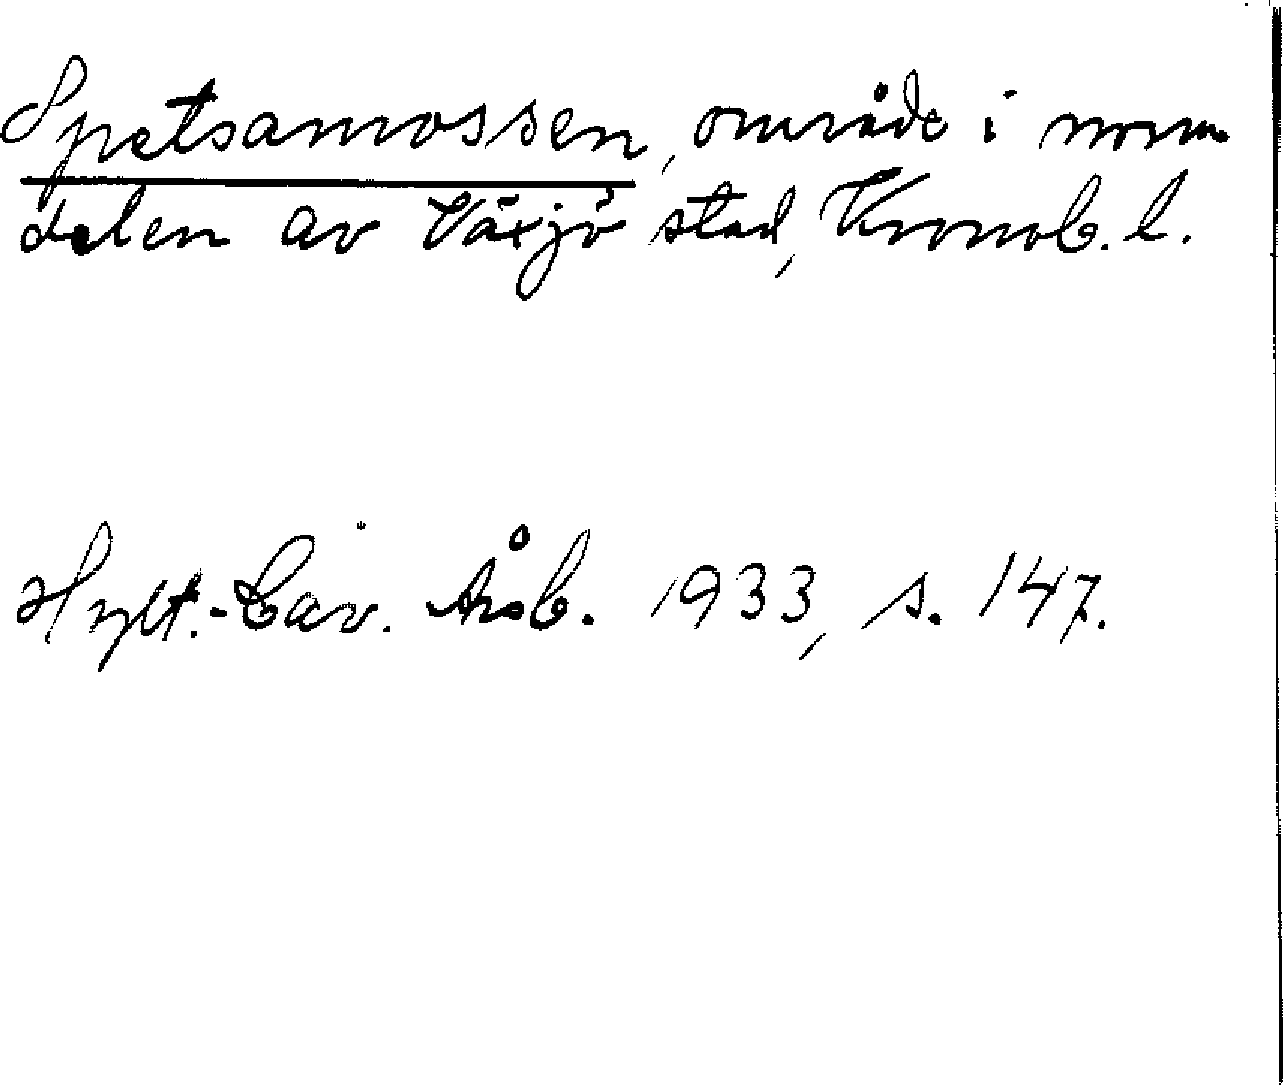 Spetsamossen, område i norra
delen av Växjö stad, Kronob. l.
Hylt.-Cav. Årsb. 1933, s. 147.